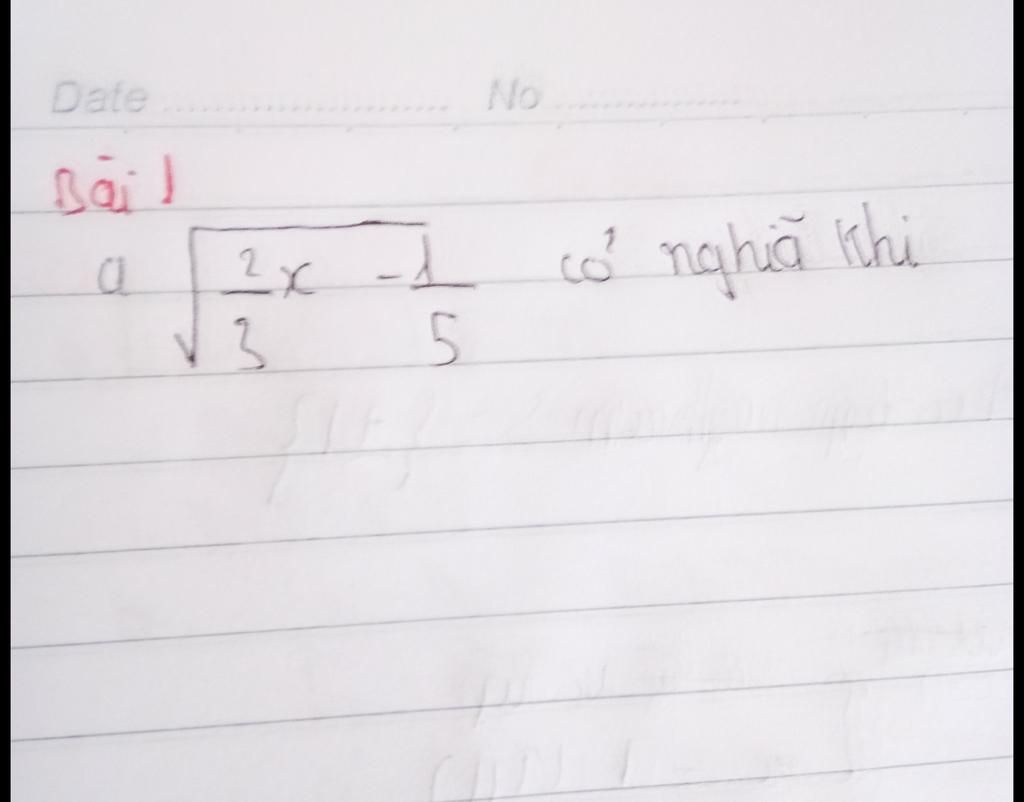 Date ........................ No ................
Bài 1
a √(2/3 x - 1/5) có nghiã khi